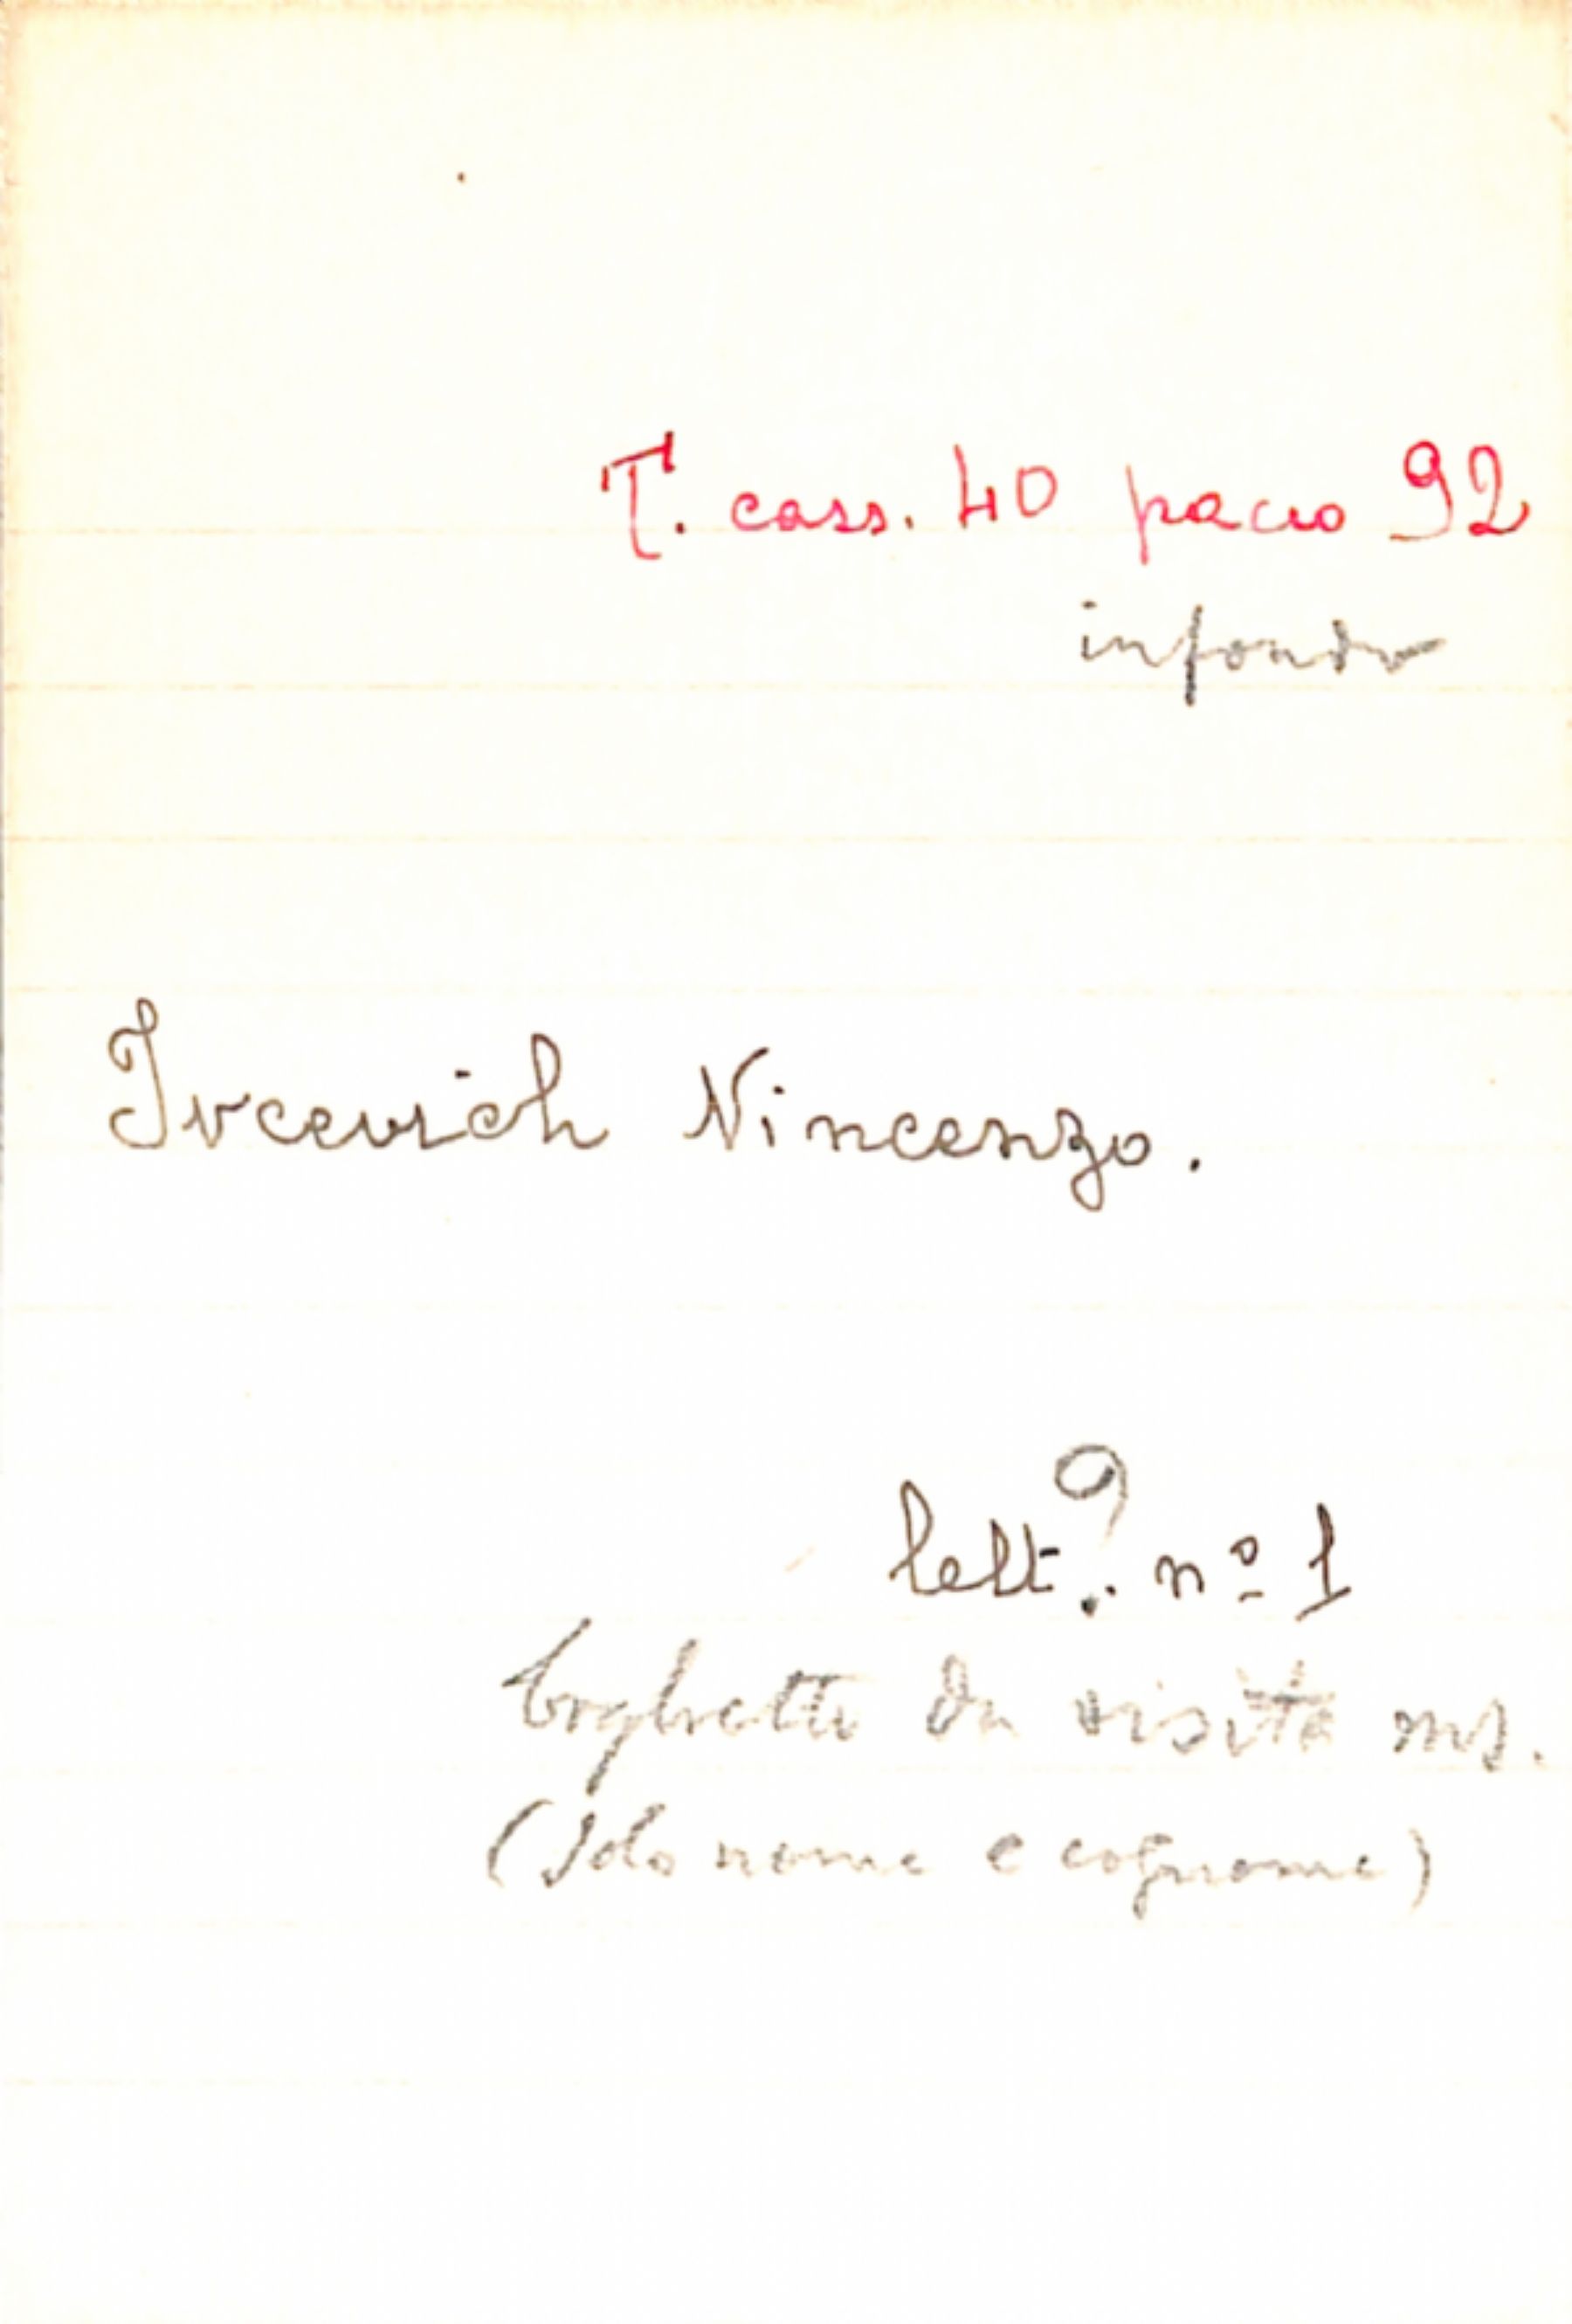 T. cass. 40 pacco 92
in fondo
Ivcevich Vincenzo.
lett. ? nº 1
biglietto da visita ms.
(solo nome e cognome)